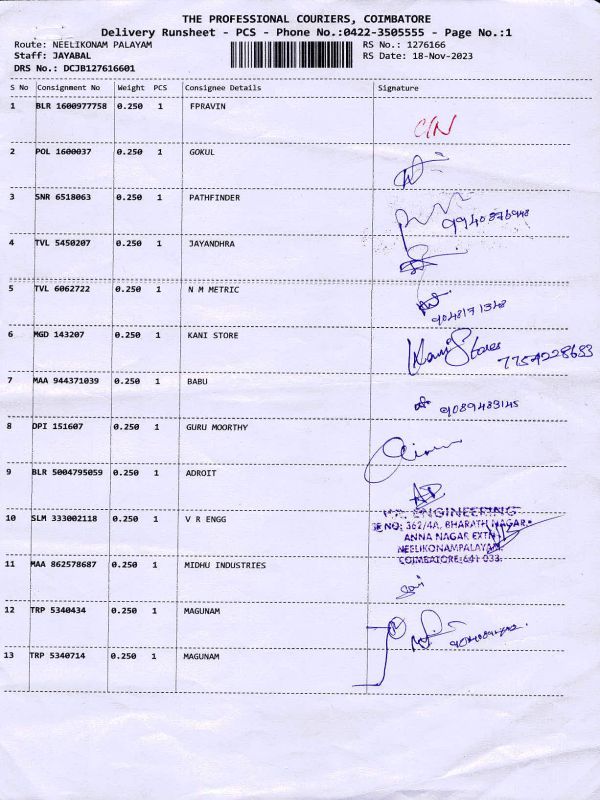 THE PROFESSIONAL COURIERS, COIMBATORE
Delivery Runsheet - PCS - Phone No.:0422-3505555 - Page No.:1
Route: NEELIKONAM PALAYAM RS No.: 1276166
Staff: JAYABAL RS Date: 18-Nov-2023
DRS No.: DCJB127616601
S No Consignment No Weight PCS Consignee Details Signature
1 BLR 1600977758 0.250 1 FPRAVIN
2 POL 1600037 0.250 1 GOKUL
3 SNR 6518063 0.250 1 PATHFINDER
9940876948
4 TVL 5450207 0.250 1 JAYANDHRA
5 TVL 6062722 0.250 1 N M METRIC
6 MGD 143207 0.250 1 KANI STORE
Kani Stores
7 MAA 944371039 0.250 1 BABU
9089483145
8 DPI 151607 0.250 1 GURU MOORTHY
9 BLR 5004795059 0.250 1 ADROIT
10 SLM 333002118 0.250 1 V R ENGG
ENGINEERING
NO: 362/4A, BHARATH NAGAR
ANNA NAGAR EXTN
NEELIKONAMPALAYAM,
COIMBATORE-641 033.
11 MAA 862578687 0.250 1 MIDHU INDUSTRIES
12 TRP 5340434 0.250 1 MAGUNAM
13 TRP 5340714 0.250 1 MAGUNAM